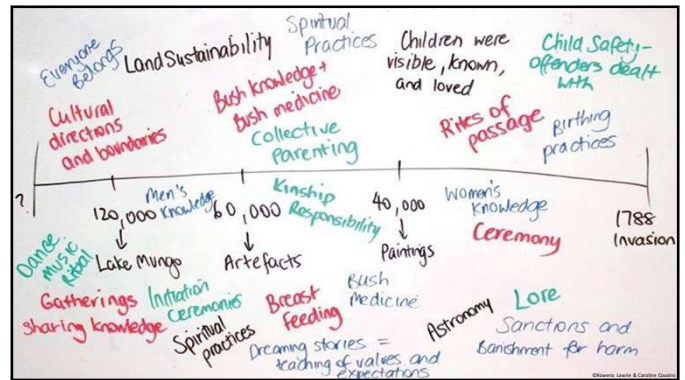 Everyone
Belongs
Land Sustainability
Spiritual
Practices
Children were
visible, known,
and loved
Child Safety-
offenders dealt
with
Cultural
directions
and boundaries
Bush knowledge +
Bush medicine
Collective
Parenting
Rites of
passage
Birthing
practices
?
120,000
Men's
Knowledge
60,000
Kinship
Responsibility
40,000
Women's
Knowledge
Ceremony
1788
Invasion
Dance
Music
Ritual
Lake Mungo
Artefacts
Paintings
Gatherings
sharing knowledge
Initiation
Ceremonies
Spiritual
practices
Breast
feeding
Bush
Medicine
Dreaming stories =
teaching of values and
expectations
Astronomy
Lore
Sanctions and
Banishment for harm
©Rowena Lawrie & Caroline Cousins